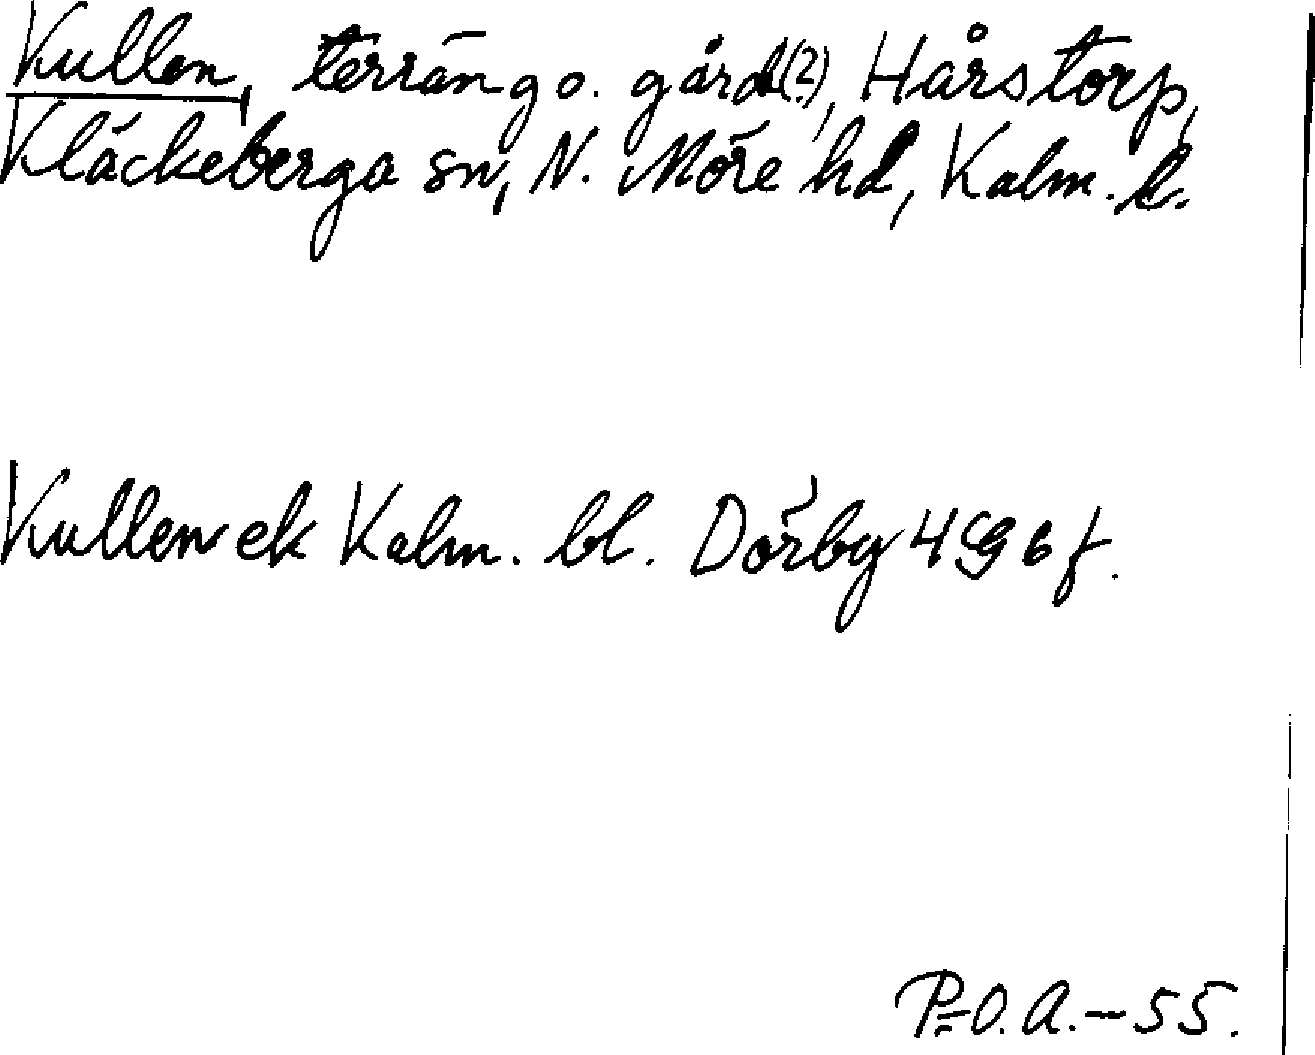 Kullen, terräng o. gård(?), Hårstorp,
Kläckeberga sn, N. Möre hd, Kalm. l.
Kullen ek Kalm. bl. Dörby 4 G 6 f.
P=O. A. - 55.